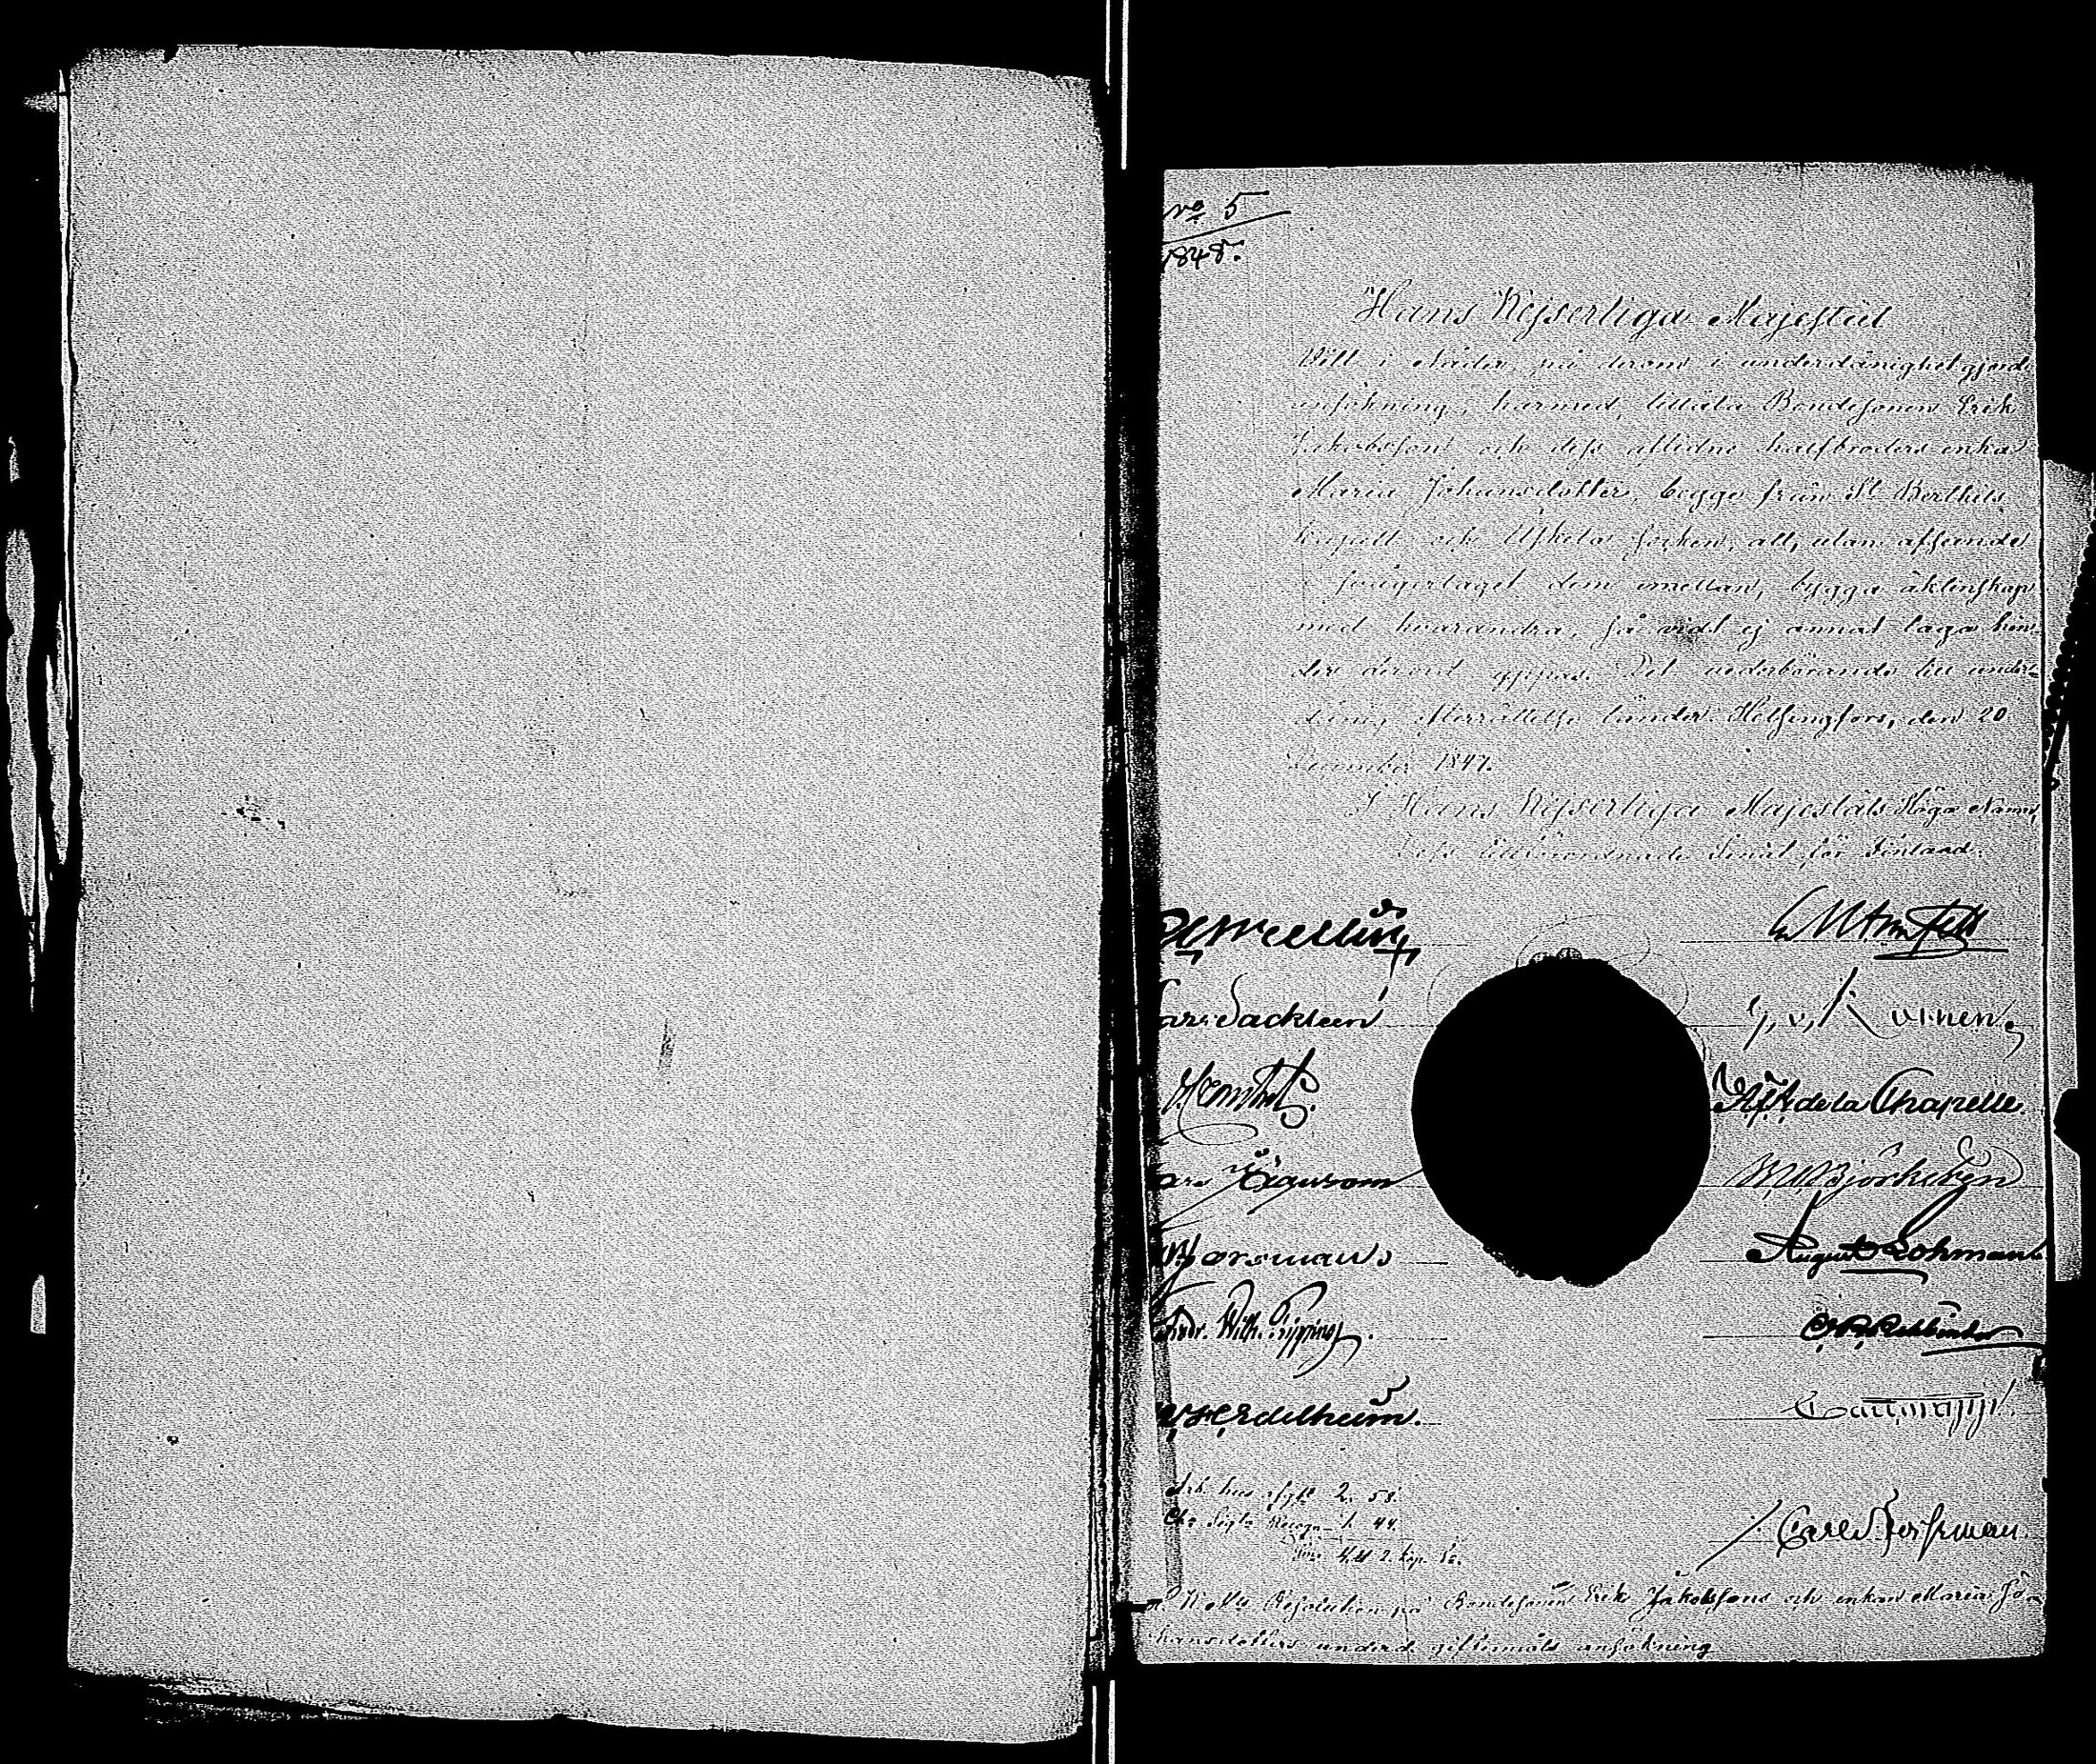 No 5
1848.
Hans Kejserliga Majestät
Vill i Nåder, på derom i underdånighet gjord
ansökning, härmed, tillåta Bondesonen Erik
Jakobsson och dess aflidne halfbroders enka
Maria Johansdotter, begge från St Berthils
kapell och Uskela socken, att, utan afseende
å svågerlaget dem emellan, bygga äktenskap
med hvarandra, så vidt ej annat laga hin-
der deremot yppas. Det vederbörande till under-
dånig efterrättelse länder. Helsingfors, den 20
December 1847.
I Hans Kejserliga Majestäts Höga Namn,
Dess tillförordnade Senat för Finland.
Armfelt
Sackleen
de la Chapelle.
W. Björkstén
August Lohman
Fredr. Wilh. Pipping.
Rehbinder
Edelheim.
2. 58.
1. 44.
Carl Forsman.
H. K. Mts Resolution på Bondesonen Erik Jakobssons och enkan Maria Jo-
hansdotters underd. giftermåls ansökning